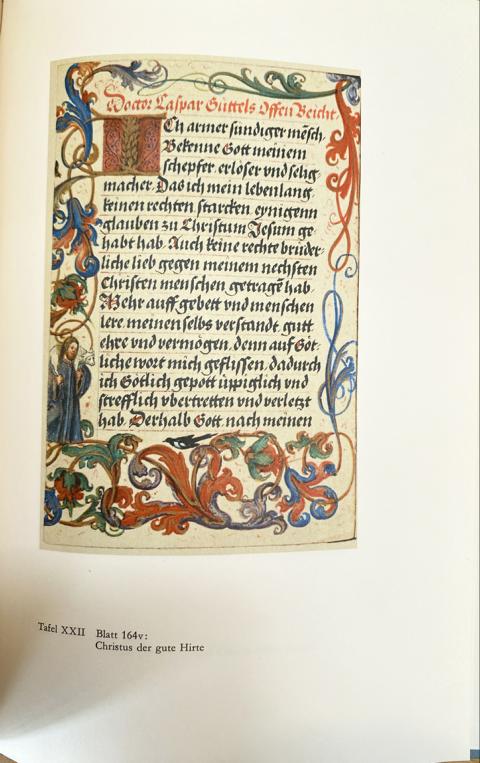 Doctor Caspar Güttels Offen Beicht.
ICh armer sundiger mēsch.
Bekenne Gott meinem
schepfer, erlöser vnd selig,
macher. Das ich mein lebenlang
keinen rechten starcken, eynigenn
glauben zu Christum Jesum ge
habt hab. Auch keine rechte brüder,
liche lieb gegen meinem nechsten
Christen menschen getragē hab.
Mehr auff gebett vnd menschen
lere, meinen selbs verstandt, gutt
ehre vnd vermögen, denn auf Göt,
liche wort mich geflissen, dadurch
ich Götlich gepott üppiglich vnd
strefflich vbertretten vnd verletzt
hab. Derhalb Gott, nach meinen
Tafel XXII Blatt 164v:
Christus der gute Hirte